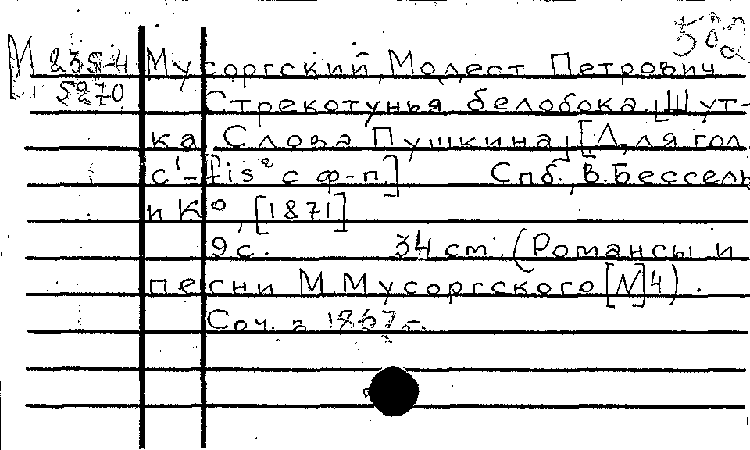 502
М 238-4 Мусоргский, Модест Петрович
5270 Стрекотунья белобока. [Шут-
ка. Слова Пушкина]. [Для гол.
c¹-fis² с ф-п.] Спб., В. Бессель
и К°, [1871]
9 с. 34 cm (Романсы и
песни М. Мусоргского [№] 4).
Соч. в 1867 г.